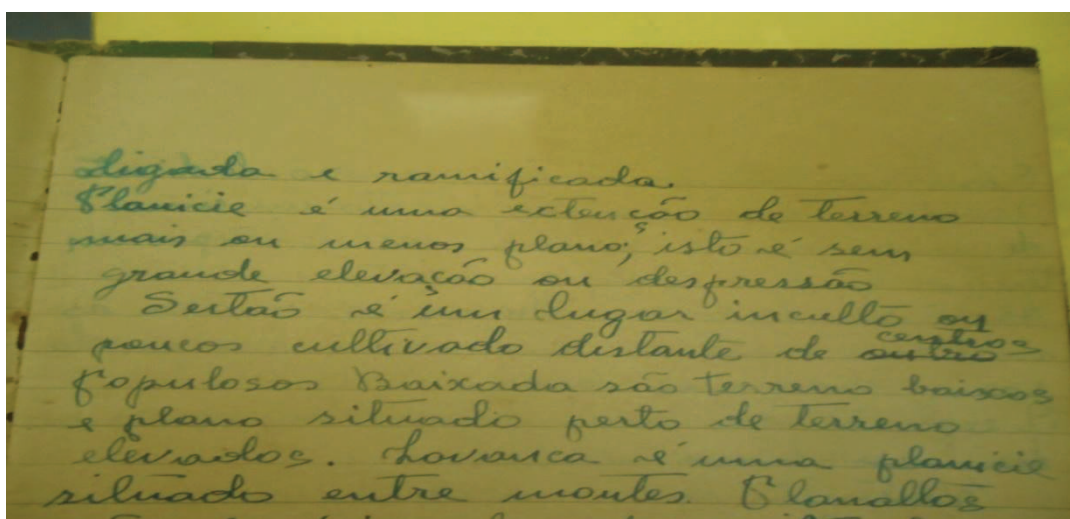 ligada e ramificada.
Planicie é uma extenção de terreno
mais ou menos plano; isto é sem
grande elevação ou despressão
Sertão é um lugar inculto ou
poucos cultivado distante de outro centros
Populosos Baixada são terreno baixos
e plano situado perto de terreno
elevados. é uma planicie
situado entre montes. Planaltos